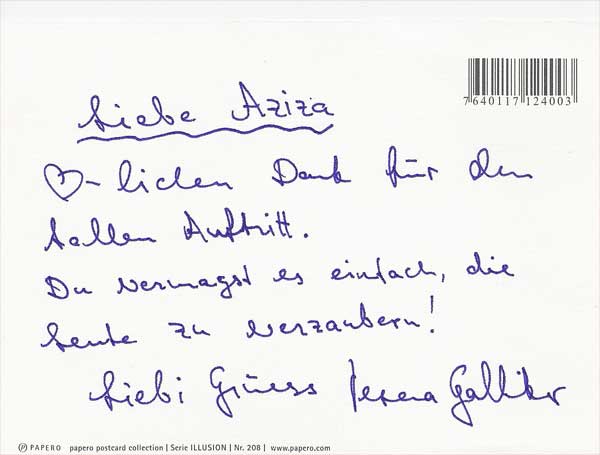 7640117124003
Liebe Aziza
♡-lichen Dank für den
tollen Auftritt.
Du vermagst es einfach, die
Leute zu verzaubern!
Liebi Grüess Verena Galliker
PAPERO papero postcard collection | Serie ILLUSION | Nr. 208 | www.papero.com